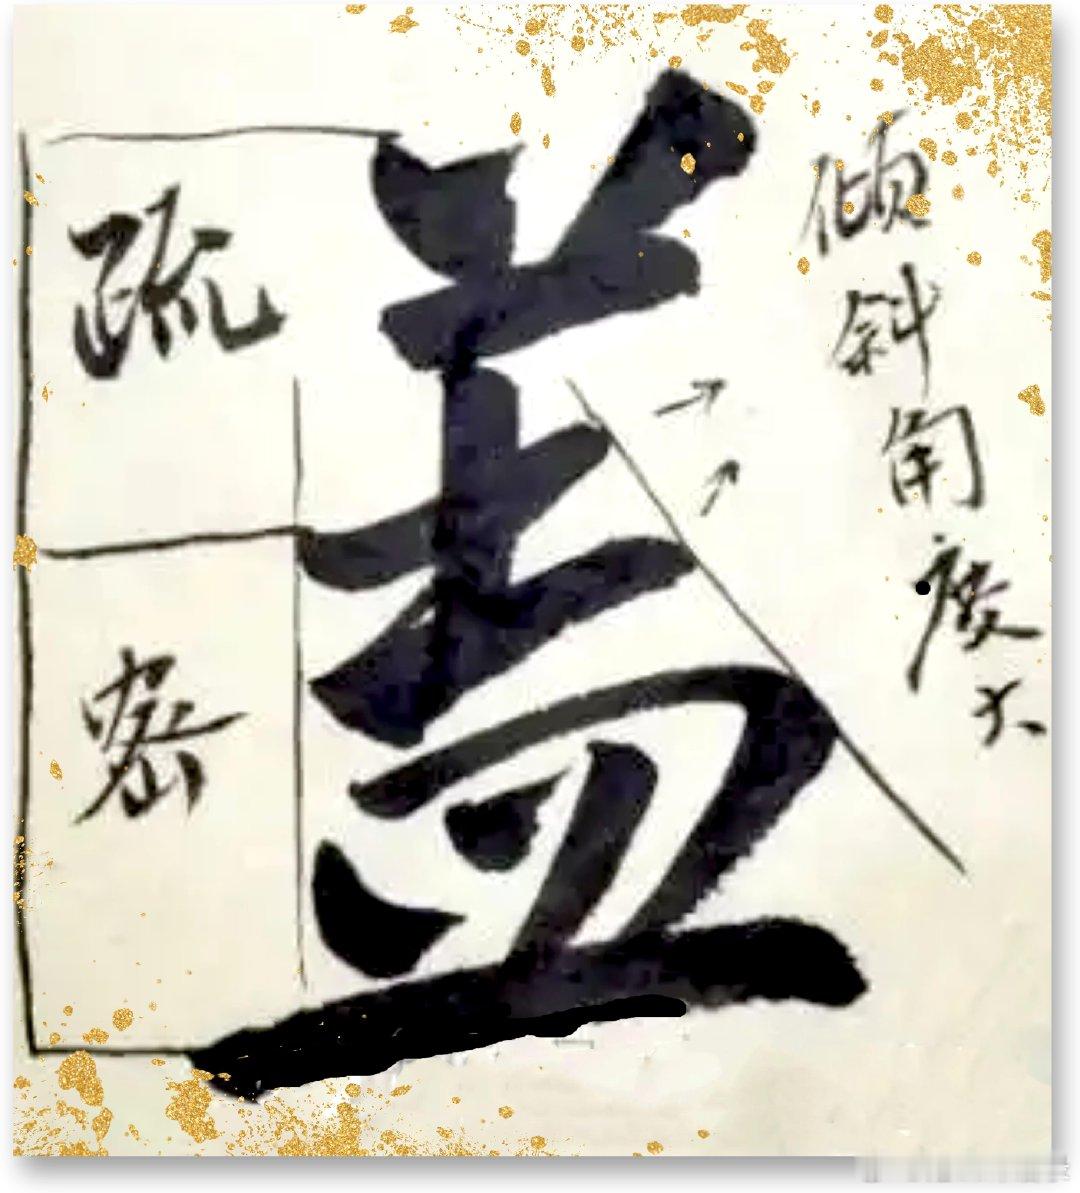 倾斜角度大
盖
疏
密